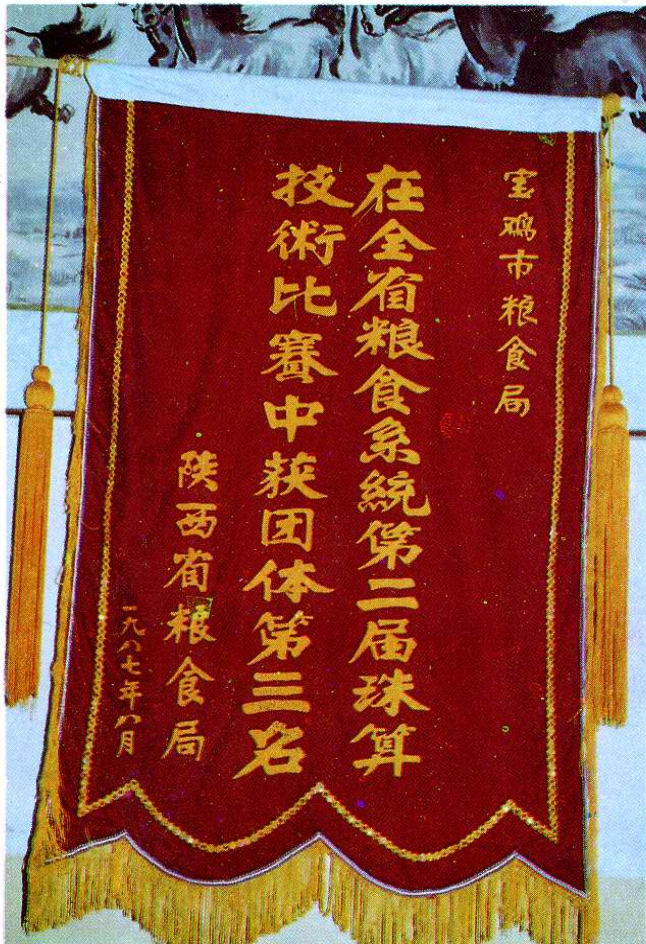 宝鸡市粮食局
在全省粮食系統第二届珠算
技術比赛中获团体第三名
陕西省粮食局
一九八七年八月